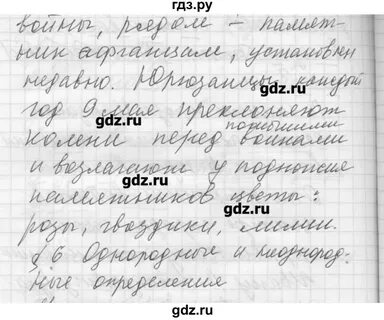 гдз.ру
войны, рядом - памят-
ник афганцам, установлен
недавно. Юрюзанцы каждый
год 9 мая преклоняют
колени перед погибшими воинами
и возлагают у подножия
памятников цветы:
розы, гвоздики, лилии.
§ 6 Однородные и неоднород-
ные определения
gdz.ru
gdz.ru
gdz.ru
gdz.ru
gdz.ru
gdz.ru